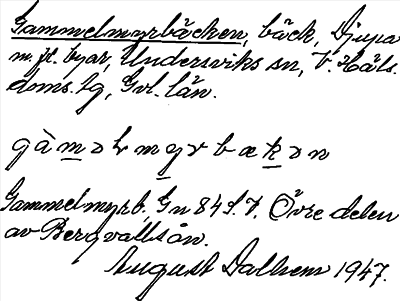 Gammelmyrbäcken, bäck, Djupa
m. fl. byar, Undersviks sn, V. Häls.
doms. tg, Gvl. län.
gàməlmyrbækən
Gammelmyrb, Gn 84 S.V. Övre delen
av Bergvallsån.
August Dalhem 1947.